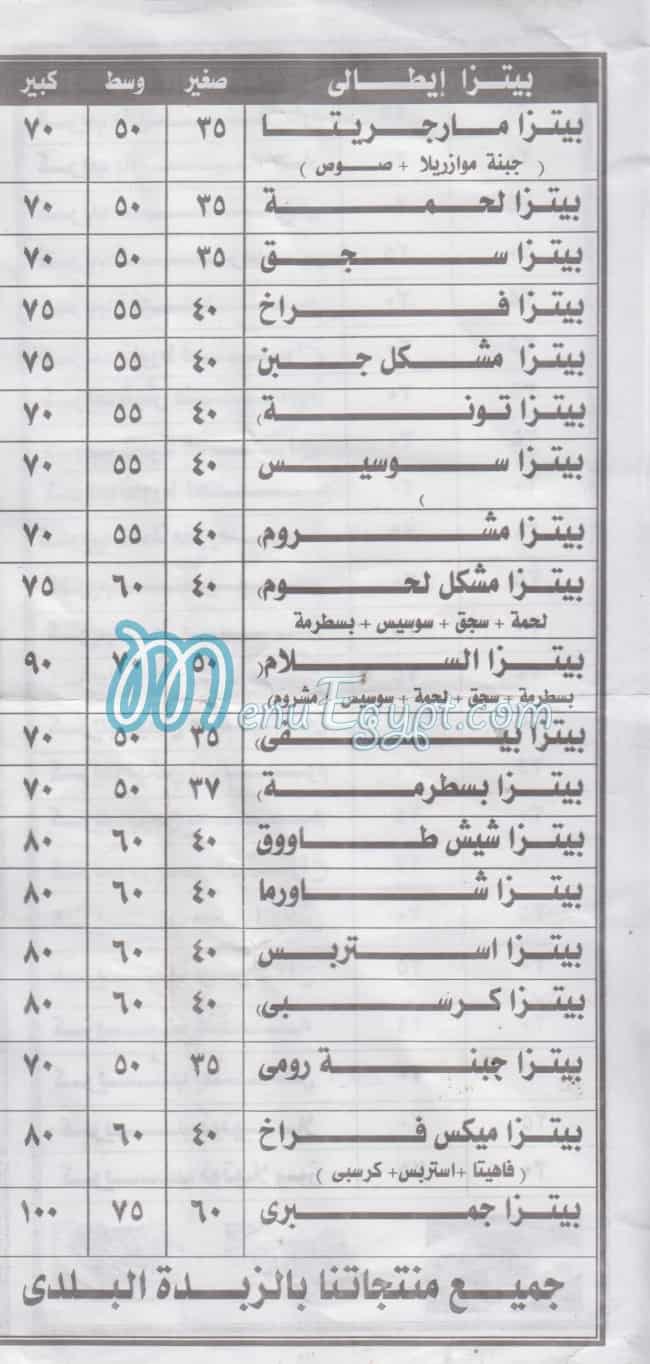 بيتزا إيطالى صغير وسط كبير
بيتزا مارجريتا ٣٥ ٥٠ ٧٠
( جبنة موازريلا + صوص )
بيتزا لحمة ٣٥ ٥٠ ٧٠
بيتزا سجق ٣٥ ٥٠ ٧٠
بيتزا فراخ ٤٠ ٥٥ ٧٥
بيتزا مشكل جبن ٤٠ ٥٥ ٧٥
بيتزا تونة) ٤٠ ٥٥ ٧٠
بيتزا سوسيس ٤٠ ٥٥ ٧٠
)
بيتزا مشروم) ٤٠ ٥٥ ٧٠
بيتزا مشكل لحوم) ٤٠ ٦٠ ٧٥
لحمة + سجق + سوسيس + بسطرمة
بيتزا السلام( ٥٠ ٧٠ ٩٠
بسطرمة + سجق + لحمة + سوسيس + مشروم)
MenuEgypt.com
بيتزا بيفى) ٣٥ ٥٠ ٧٠
بيتزا بسطرمة) ٣٧ ٥٠ ٧٠
بيتزا شيش طاووق ٤٠ ٦٠ ٨٠
بيتزا شاورما ٤٠ ٦٠ ٨٠
بيتزا استربس ٤٠ ٦٠ ٨٠
بيتزا كرسبى) ٤٠ ٦٠ ٨٠
بيتزا جبنة رومى ٣٥ ٥٠ ٧٠
بيتزا ميكس فراخ ٤٠ ٦٠ ٨٠
( فاهيتا +استربس+ كرسبى )
بيتزا جمبرى ٦٠ ٧٥ ١٠٠
جميع منتجاتنا بالزبدة البلدى